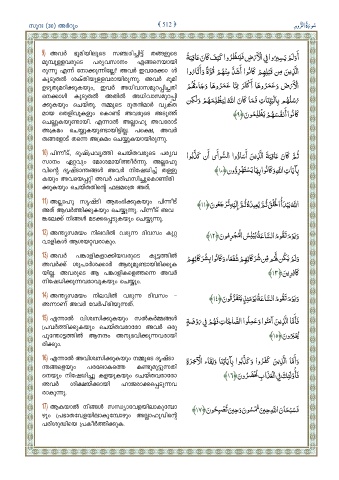 സൂറ (30) അർറൂം
﴾ 512 ﴿
سُورَةُ الرُّوم
9) അവർ ഭൂമിയിലൂടെ സഞ്ചരിച്ചിട്ട് തങ്ങളുടെ
മുമ്പുള്ളവരുടെ പര്യവസാനം എങ്ങനെയായി
രുന്നു എന്ന് നോക്കുന്നില്ലേ? അവർ ഇവരേക്കാൾ
കൂടുതൽ ശക്തിയുള്ളവരായിരുന്നു. അവർ ഭൂമി
ഉഴുതുമറിക്കുകയും, ഇവർ അധിവാസമുറപ്പിച്ചതി
നെക്കാൾ കൂടുതൽ അതിൽ അധിവാസമുറപ്പി
ക്കുകയും ചെയ്തു. നമ്മുടെ ദൂതൻമാർ വ്യക്ത
മായ തെളിവുകളും കൊണ്ട് അവരുടെ അടുത്ത്
ചെല്ലുകയുണ്ടായി. എന്നാൽ അല്ലാഹു അവരോട്
അക്രമം ചെയ്യുകയുണ്ടായിട്ടില്ല. പക്ഷെ, അവർ
തങ്ങളോട് തന്നെ അക്രമം ചെയ്യുകയായിരുന്നു.
أَوَلَمْ يَسِيرُوا فِي الْأَرْضِ فَيَنظُرُوا كَيْفَ كَانَ عَاقِبَةُ
الَّذِينَ مِن قَبْلِهِمْ كَانُوا أَشَدَّ مِنْهُمْ قُوَّةً وَأَثَارُوا
الْأَرْضَ وَعَمَرُوهَا أَكْثَرَ مِمَّا عَمَرُوهَا وَجَاءَتْهُمْ
رُسُلُهُم بِالْبَيِّنَاتِ فَمَا كَانَ اللَّهُ لِيَظْلِمَهُمْ وَلَٰكِن
كَانُوا أَنفُسَهُمْ يَظْلِمُونَ ﴿٩﴾
10) പിന്നീട്, ദുഷ്പ്രവൃത്തി ചെയ്തവരുടെ പര്യവ
സാനം ഏറ്റവും മോശമായിത്തീർന്നു. അല്ലാഹു
വിന്റെ ദൃഷ്ടാന്തങ്ങൾ അവർ നിഷേധിച്ച് തള്ളു
കയും അവയെപ്പറ്റി അവർ പരിഹസിച്ചുകൊണ്ടിരി
ക്കുകയും ചെയ്തതിന്റെ ഫലമത്രെ അത്.
ثُمَّ كَانَ عَاقِبَةَ الَّذِينَ أَسَاءُوا السُّوأَىٰ أَن كَذَّبُوا
بِآيَاتِ اللَّهِ وَكَانُوا بِهَا يَسْتَهْزِئُونَ ﴿١٠﴾
11) അല്ലാഹു സൃഷ്ടി ആരംഭിക്കുകയും പിന്നീട്
അത് ആവർത്തിക്കുകയും ചെയ്യുന്നു. പിന്നീട് അവ
ങ്കലേക്ക് നിങ്ങൾ മടക്കപ്പെടുകയും ചെയ്യുന്നു.
اللَّهُ يَبْدَأُ الْخَلْقَ ثُمَّ يُعِيدُهُ ثُمَّ إِلَيْهِ تُرْجَعُونَ ﴿١١﴾
12) അന്ത്യസമയം നിലവിൽ വരുന്ന ദിവസം കുറ്റ
വാളികൾ ആശയറ്റവരാകും.
وَيَوْمَ تَقُومُ السَّاعَةُ يُبْلِسُ الْمُجْرِمُونَ ﴿١٢﴾
13) അവർ പങ്കാളികളാക്കിയവരുടെ കൂട്ടത്തിൽ
അവർക്ക് ശുപാർശക്കാർ ആരുമുണ്ടായിരിക്കുക
യില്ല. അവരുടെ ആ പങ്കാളികളെത്തന്നെ അവർ
നിഷേധിക്കുന്നവരാവുകയും ചെയ്യും.
وَلَمْ يَكُن لَّهُم مِّن شُرَكَائِهِمْ شُفَعَاءُ وَكَانُوا بِشُرَكَائِهِمْ
كَافِرِينَ ﴿١٣﴾
14) അന്ത്യസമയം നിലവിൽ വരുന്ന ദിവസം -
അന്നാണ് അവർ വേർപിരിയുന്നത്.
وَيَوْمَ تَقُومُ السَّاعَةُ يَوْمَئِذٍ يَتَفَرَّقُونَ ﴿١٤﴾
15) എന്നാൽ വിശ്വസിക്കുകയും സൽകർമ്മങ്ങൾ
പ്രവർത്തിക്കുകയും ചെയ്തവരാരോ അവർ ഒരു
പൂന്തോട്ടത്തിൽ ആനന്ദം അനുഭവിക്കുന്നവരായി
രിക്കും.
فَأَمَّا الَّذِينَ آمَنُوا وَعَمِلُوا الصَّالِحَاتِ فَهُمْ فِي رَوْضَةٍ
يُحْبَرُونَ ﴿١٥﴾
16) എന്നാൽ അവിശ്വസിക്കുകയും നമ്മുടെ ദൃഷ്ടാ
ന്തങ്ങളെയും പരലോകത്തെ കണ്ടുമുട്ടുന്നതി
നെയും നിഷേധിച്ചു കളയുകയും ചെയ്തവരാരോ
അവർ ശിക്ഷയ്ക്കായി ഹാജരാക്കപ്പെടുന്നവ
രാകുന്നു.
وَأَمَّا الَّذِينَ كَفَرُوا وَكَذَّبُوا بِآيَاتِنَا وَلِقَاءِ الْآخِرَةِ
فَأُولَٰئِكَ فِي الْعَذَابِ مُحْضَرُونَ ﴿١٦﴾
17) ആകയാൽ നിങ്ങൾ സന്ധ്യാവേളയിലാകുമ്പോ
ഴും പ്രഭാതവേളയിലാകുമ്പോഴും അല്ലാഹുവിന്റെ
പരിശുദ്ധിയെ പ്രകീർത്തിക്കുക.
فَسُبْحَانَ اللَّهِ حِينَ تُمْسُونَ وَحِينَ تُصْبِحُونَ ﴿١٧﴾